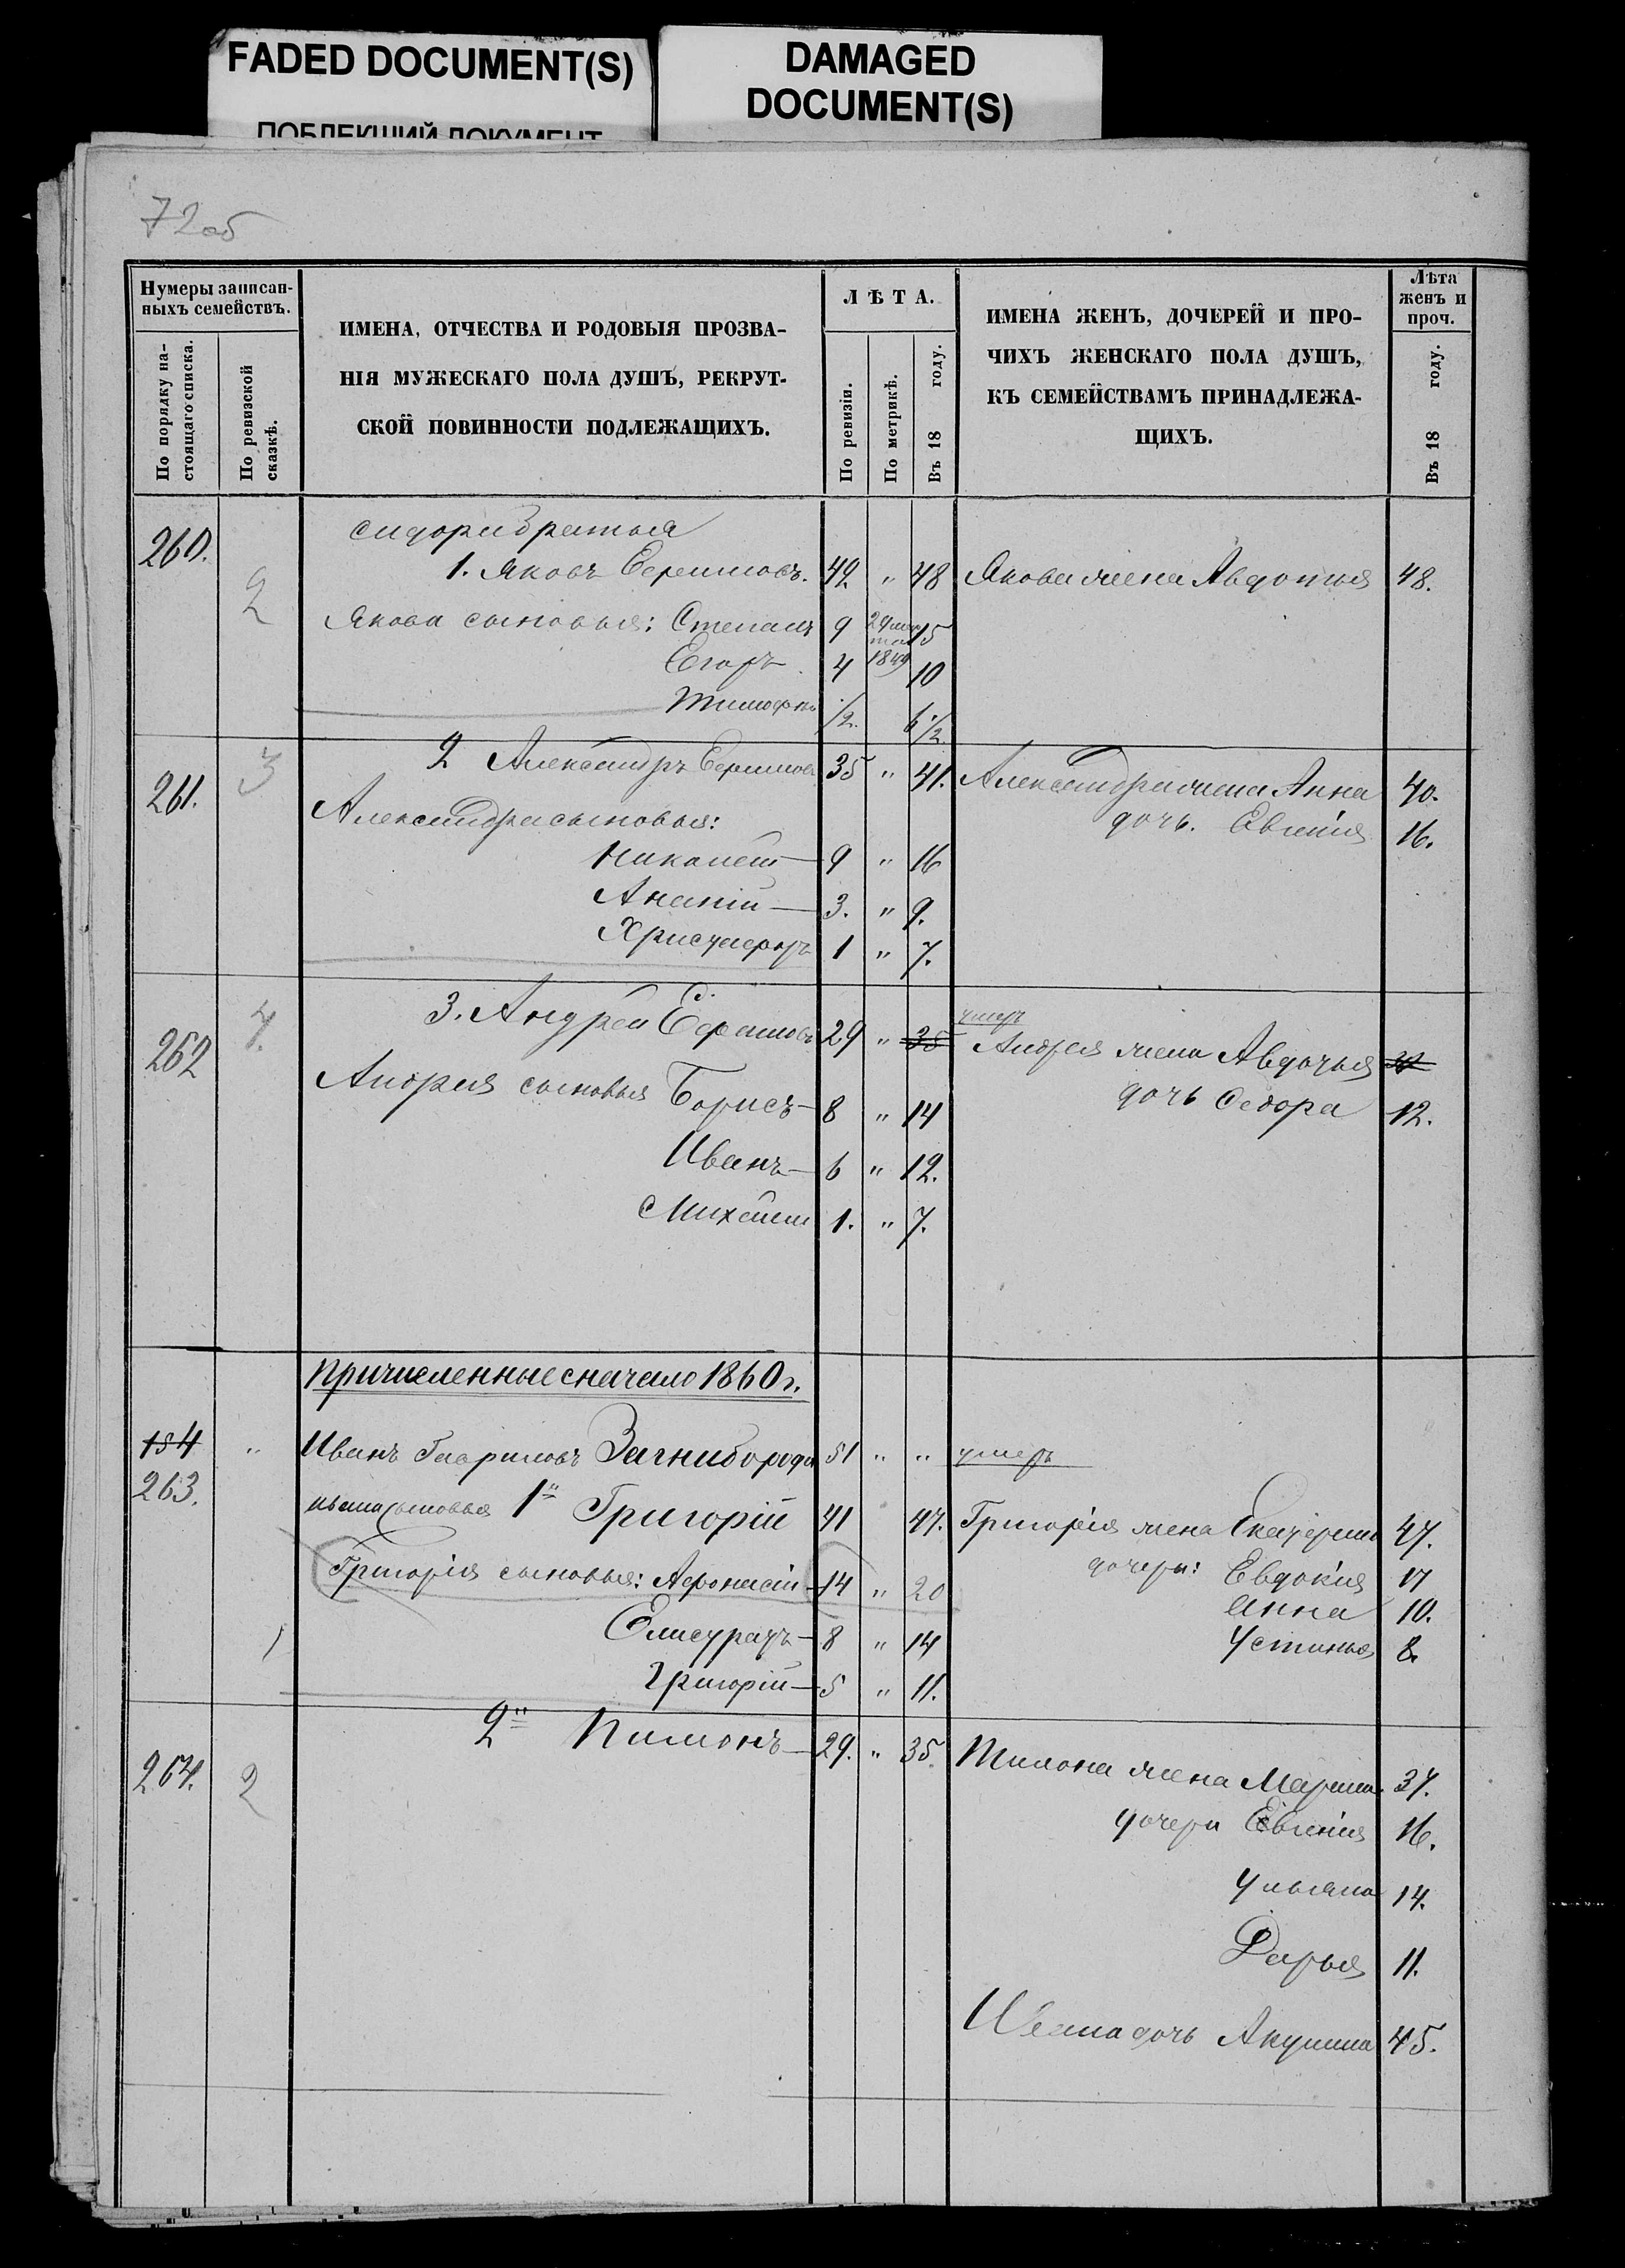 FADED DOCUMENT(S)
ПОБЛЕКШИЙ ДОКУМЕНТ
DAMAGED
DOCUMENT(S)
72об
Нумеры записан-
ныхъ семействъ.
По порядку на-
стоящаго списка.
По ревизской
сказкѣ.
ИМЕНА, ОТЧЕСТВА И РОДОВЫЯ ПРОЗВА-
НІЯ МУЖЕСКАГО ПОЛА ДУШЪ, РЕКРУТ-
СКОЙ ПОВИННОСТИ ПОДЛЕЖАЩИХЪ.
ЛѢТА.
По ревизіи.
По метрикѣ.
Въ 18 году.
ИМЕНА ЖЕНЪ, ДОЧЕРЕЙ И ПРО-
ЧИХЪ ЖЕНСКАГО ПОЛА ДУШЪ,
КЪ СЕМЕЙСТВАМЪ ПРИНАДЛЕЖА-
ЩИХЪ.
Лѣта
женъ и
проч.
Въ 18 году.
сидора братья
260. 2 1. Яковъ Ефимовъ. 42 " 48 Якова жена Авдотья 48.
Якова сыновья: Степанъ 9 15
Егоръ 4 1849 10
Тимофей 1/2. 6 1/2
261. 3 2 Александръ Ефимовъ 35 " 41. Александра жена Анна 40.
Александра сыновья: дочь. Евгенія 16.
9 " 16
Ананій 3. " 9.
Христофоръ 1 " 7.
262 4. 3. Андрей Ефимовъ 29 " 35 умеръ Андрея жена Авдотья
Андрея сыновья Борисъ 8 " 14 дочь Федора 12.
Иванъ 6 " 12.
Михаилъ 1. " 7.
Причисленные сначало 1860 г.
154 " Иванъ Гавриловъ Загниборода 51 " " умеръ
263. Ивана сыновья 1й Григорій 41 47. Григорія жена Екатерина 47.
Григорія сыновья: Афонасій 14 " 20 дочери: Евдокія 17
Анна 10.
1 Елисуратъ 8 " 14 Устинья 8.
Григорій 5 " 11.
264. 2 2й Пимонъ 29. " 35. Пимона жена Марина 37.
дочери Евгенія 16.
Ульяна 14.
Дарья 11.
Ивана дочь Акулина 45.